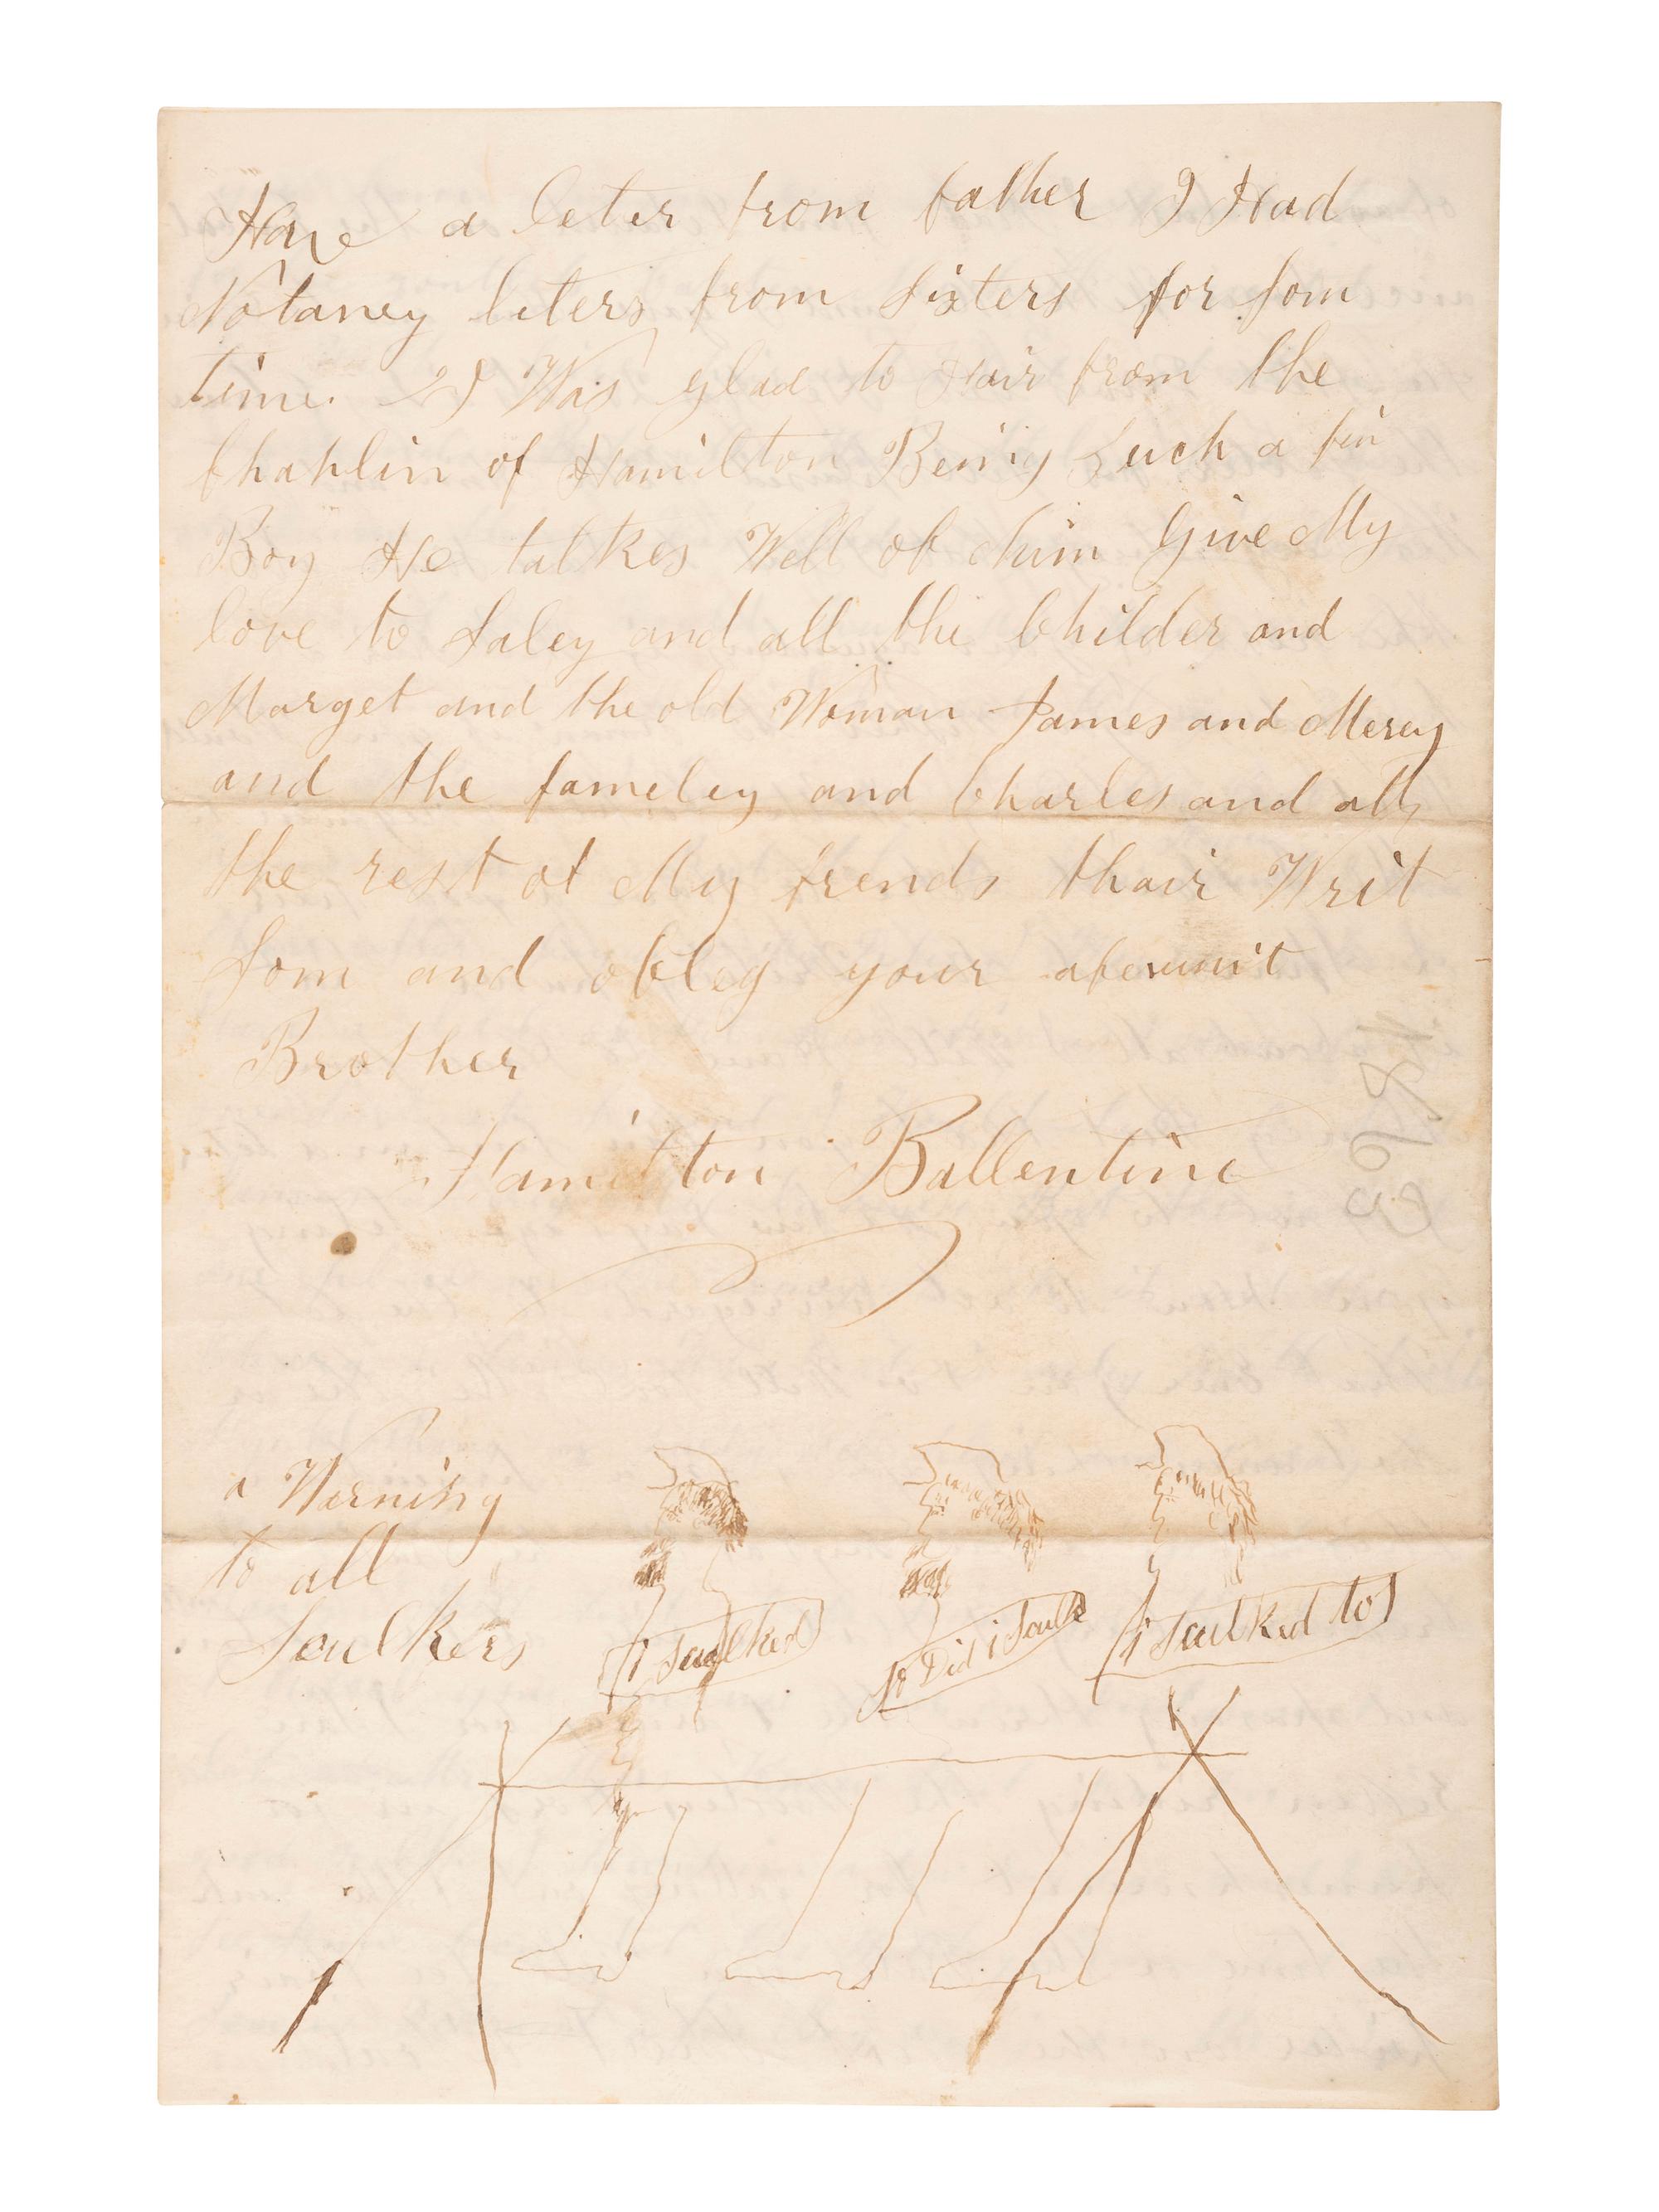 Have a leter from father I Had
Notaney leters from sisters for som
time. I Was glad to Hair from the
Chaplin of Hamilton Being such a fin
Boy He talkes Well of Him Give My
love to Saley and all the Childer and
Marget and the old Woman James and Merey
and the fameley and Charles and all
the rest of My frends thair Writ
som and obleg your
Brother
Hamilton Ballentine
1863
a Warning
to all
Sculkers
i Sculked
so Did i Sculk
i Sculked to